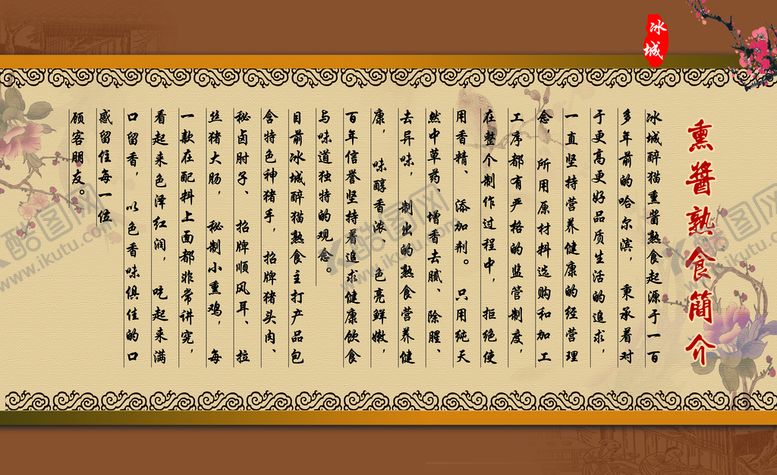 冰城
熏醬熟食簡介
冰城醉猫熏酱熟食起源于一百
多年前的哈尔滨，秉承着对
于更高更好品质生活的追求，
一直坚持营养健康的经营理
念，所用原材料选购和加工
工序都有严格的监管制度，
在整个制作过程中，拒绝使
用香精、添加剂。只用纯天
然中草药、增香去腻、除腥、
去异味，制出的熟食营养健
康，味醇香浓、色亮鲜嫩，
百年信誉坚持着追求健康饮食
与味道独特的观念。
目前冰城醉猫熟食主打产品包
含特色神猪手，招牌猪头肉、
秘卤肘子、招牌顺风耳、拉
丝猪大肠，秘制小熏鸡，每
一款在配料上面都非常讲究，
看起来色泽红润，吃起来满
口留香，以色香味俱佳的口
感留住每一位
顾客朋友。
酷图网
www.ikutu.com